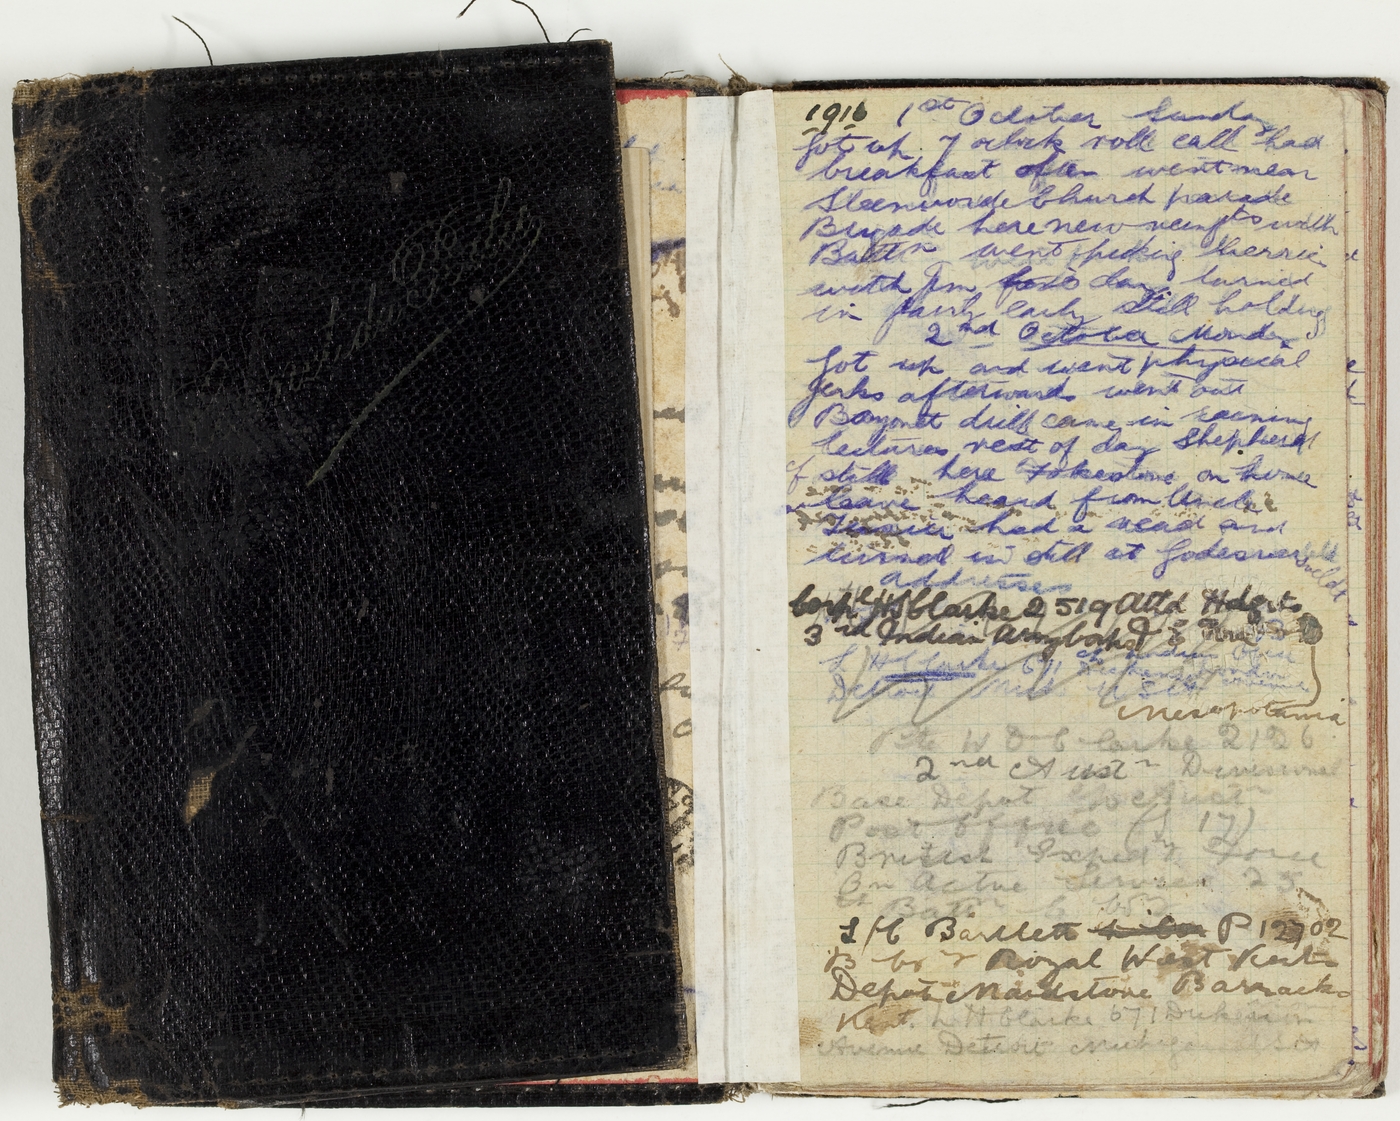 1916 1st October Sunday
Got up 7 oclock roll call had
breakfast after went near
Steenvorde Church parade
Brigade here new with
Battn went picking berries
with Jim day turned
in fairly early still holding
2nd October Monday
Got up and went physical
jerks afterwards went out
Bayonet drill came in raining
lectures rest of day Shepherd
still here Folkestone on home
leave heard from Uncle
had a read and
turned in still at
addresses
Corpl H J Clarke 2519 Attd Hdqrts
3rd Indian Army Corps I E Force D
L H Clarke 671
Detroit Mich U S A
Mesopotamia
Pte W O Clarke 2126
2nd Austn Divisional
Base Depot
Post Office (S 17)
British Expedt Force
On Active Service 25
Battn C Coy
L/C Bartlett P 12702
B Coy Royal West Kents
Depot Maidstone Barracks
Kent. L H Clarke 671 Dickerson
Avenue Detroit Michigan U S A